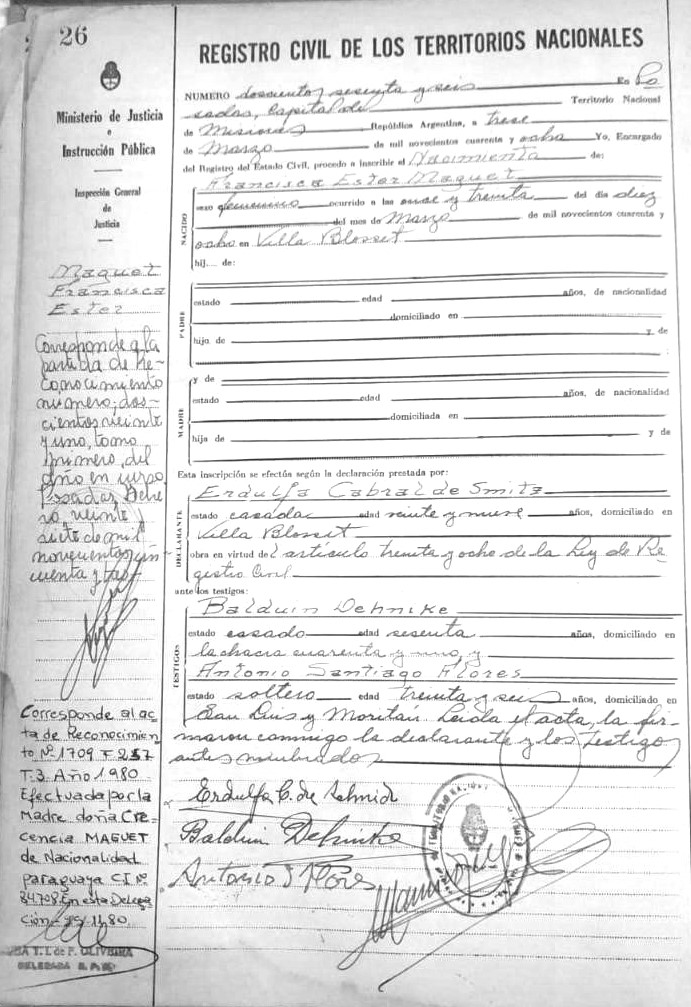 26
REGISTRO CIVIL DE LOS TERRITORIOS NACIONALES
Ministerio de Justicia
e
Instrucción Pública
Inspección General
de
Justicia
Maguet
Francisca
Ester
Corresponde a la
partida de re-
conocimiento
numero, dos-
cientos veinte
y uno, tomo
primero, del
año en curso
Posadas
veinte
siete de mil
novecientos cin
cuenta y tres
Corresponde al ac
ta de Reconocimien
to Nº 1709 F 257
T.3. Año 1980
Efectuada por la
Madre doña Cre-
cencia MAGUET
de Nacionalidad
paraguaya C.I Nº
84708 En esta Delega
ción
T. I. de P. OLIVEIRA
DELEGADA
NUMERO doscientos sesenta y seis En Po
sadas, Capital de Territorio Nacional
de Misiones República Argentina, a trece
de Marzo de mil novecientos cuarenta y ocho Yo, Encargado
del Registro del Estado Civil, procedo a inscribir el Nacimiento de:
NACIDO
Francisca Ester Maguet
sexo femenino ocurrido a las once y treinta del día diez
del mes de Marzo de mil novecientos cuarenta y
ocho en Villa Blosset
hij.. de:
PADRE
estado edad años, de nacionalidad
domiciliado en
hijo de y de
MADRE
y de
estado edad años, de nacionalidad
domiciliada en
hija de y de
Esta inscripción se efectúa según la declaración prestada por:
DECLARANTE
Erdulfa Cabral de Smitz
estado casada edad veinte y nueve años, domiciliado en
Villa Blosset
obra en virtud del artículo treinta y ocho de la Ley de Re
gistro Civil
ante los testigos:
TESTIGOS
Balduin Dehnike
estado casado edad sesenta años, domiciliado en
la chacra cuarenta y uno, y
Antonio Santiago Flores
estado soltero edad treinta y seis años, domiciliado en
San Luis y Moritán. Leída el acta, la fir-
maron conmigo la declarante y los testigos
antes nombrados
Erdulfa C. de Schmidt
Balduin Dehnike
Antonio S Flores